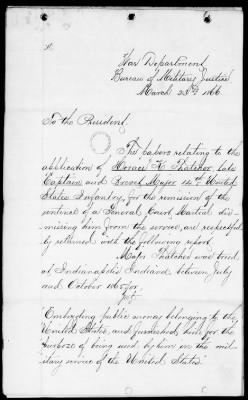 War Department,
Bureau of Military Justice
March 28th 1866
To the President,
The papers relating to the
application of Horace K. Thatcher, late
Captain and Brevet Major 14th United
States Infantry, for the remission of the
sentence of a General Court Martial dis-
missing him from the service, are respectful-
ly returned with the following report
Major Thatcher was tried
at Indianapolis Indiana between July
and October 1865 for,
1st
"Embezzling public money belonging to the
United States, and furnished him for the
purpose of being used by him in the mil-
itary service of the United States"